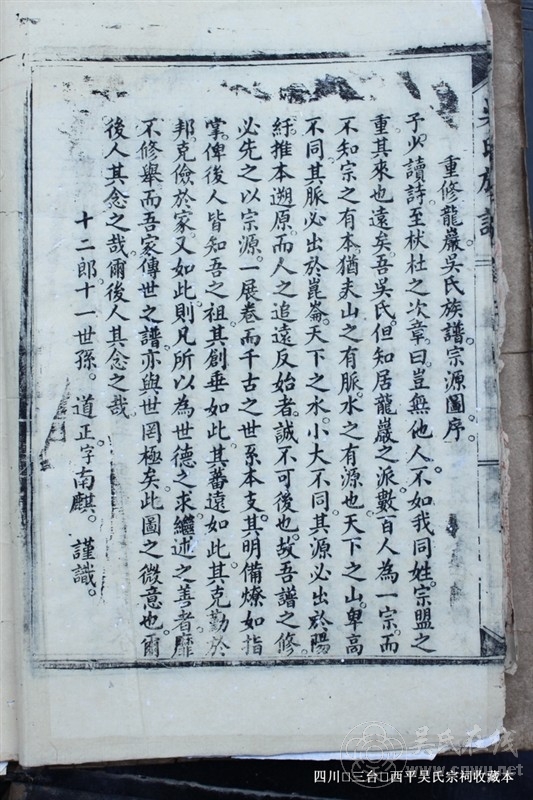 重修龍巖吳氏族譜宗源圖序。
予少讀詩至杕杜之次章。曰。豈無他人。不如我同姓。宗盟之
重其來也遠矣。吾吳氏。但知居龍巖之派。數百人為一宗。而
不知宗之有本。猶夫山之有脈。水之有源也。天下之山。卑高
不同。其脈必出於崑崙。天下之水。小大不同。其源必出於陽
紆。推本遡原。而人之追遠反始者。誠不可後也。故吾譜之修。
必先之以宗源。一展卷而千古之世系本支。其明備燎如指
掌。俾後人皆知吾之祖。其創垂如此。其蕃遠如此。其克勤於
邦克儉於家。又如此。則凡所以為世德之求。繼述之善者。靡
不修舉。而吾家傳世之譜。亦與世罔極矣。此圖之微意也。爾
後人其念之哉。爾後人其念之哉。
十二郎。十一世孫。道正字南麒。謹識。
吳氏族譜
吴氏在线
www.cnwu.net
四川□三台□西平吴氏宗祠收藏本